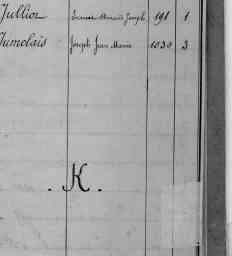 Jullior Marie Joseph 191 1
Jumelais Joseph Jean Marie 1030 3
. K .